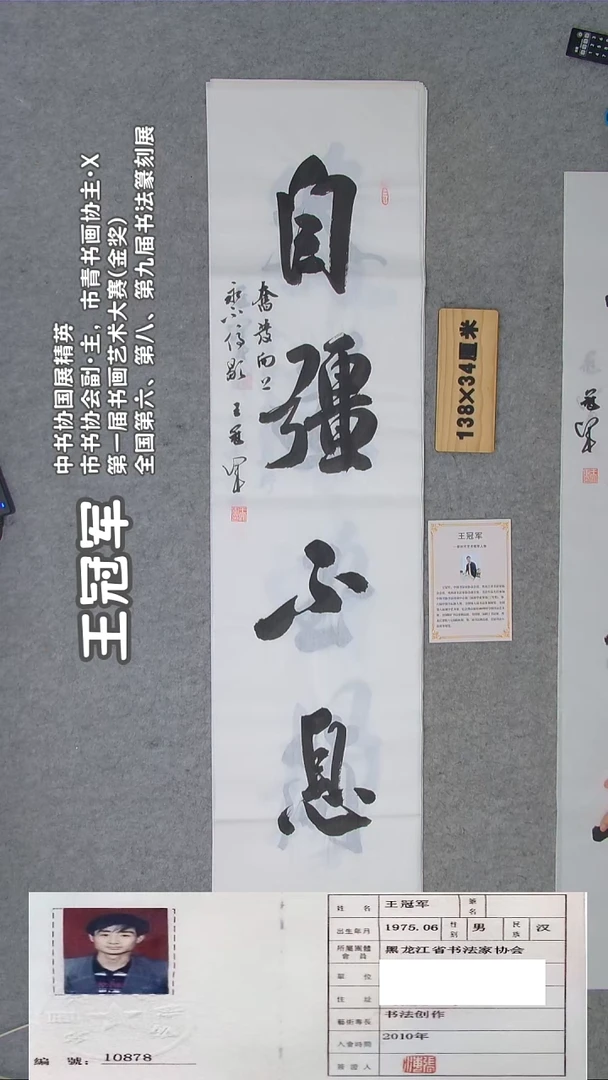 自彊不息
奮發向上
永不停歇
王冠军
王冠军
中书协国展精英
市书协会副·主，市青书画协主·X
第一届书画艺术大赛(金奖)
全国第六、第八、第九届书法篆刻展
138×34厘米
王冠军
姓名 王冠军 筆名
出生年月 1975.06 性别 男 民族 汉
所屬團體會員 黑龙江省书法家协会
職位
住址
藝術專長 书法创作
入會時間 2010年
簽證人
编號: 10878